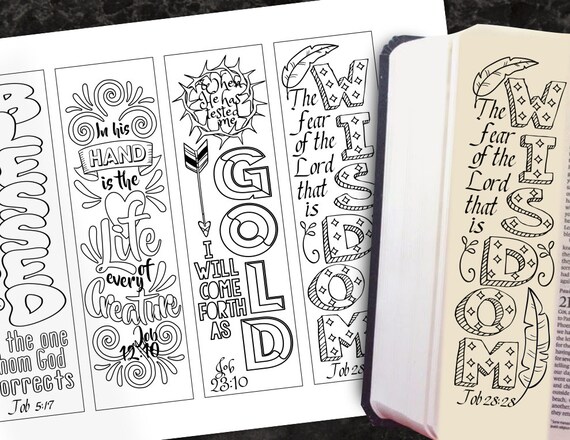 BLESSED
the one
hom God
orrects
Job 5:17
In his
HAND
is the
Life
of
every
Creature
Job
12:10
When
he has
tested
me
I
WILL
COME
FORTH
AS
GOLD
Job
23:10
The
fear
of the
Lord
that
is
WISDOM
Job 28:
The
fear
of the
Lord
that
is
WISDOM
Job 28:28
21